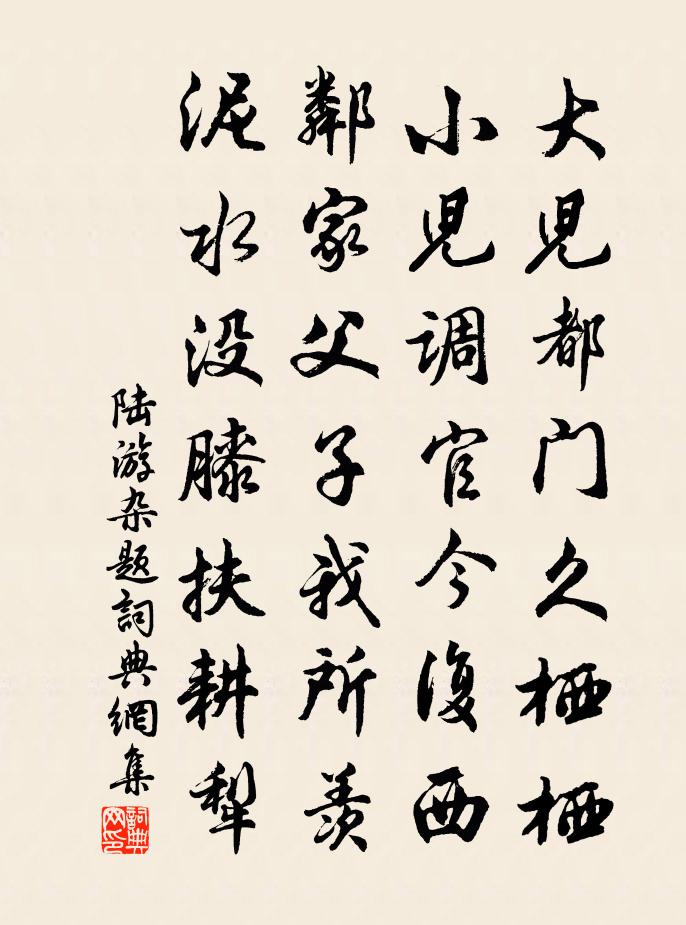 大児都門久栖栖
小児調官今復西
鄰家父子我所羨
泥水没膝扶耕犂
陆游杂题詞典網集
詞典网印